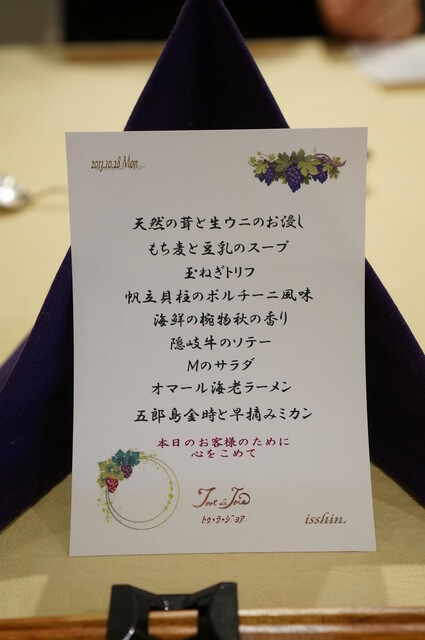 2013.10.28 Mon
天然の茸と生ウニのお浸し
もち麦と豆乳のスープ
玉ねぎトリフ
帆立貝柱のポルチーニ風味
海鮮の椀物秋の香り
隠岐牛のソテー
Mのサラダ
オマール海老ラーメン
五郎島金時と早摘みミカン
本日のお客様のために
心をこめて
Tout la Joie
トゥ・ラ・ジョアー
isshin.